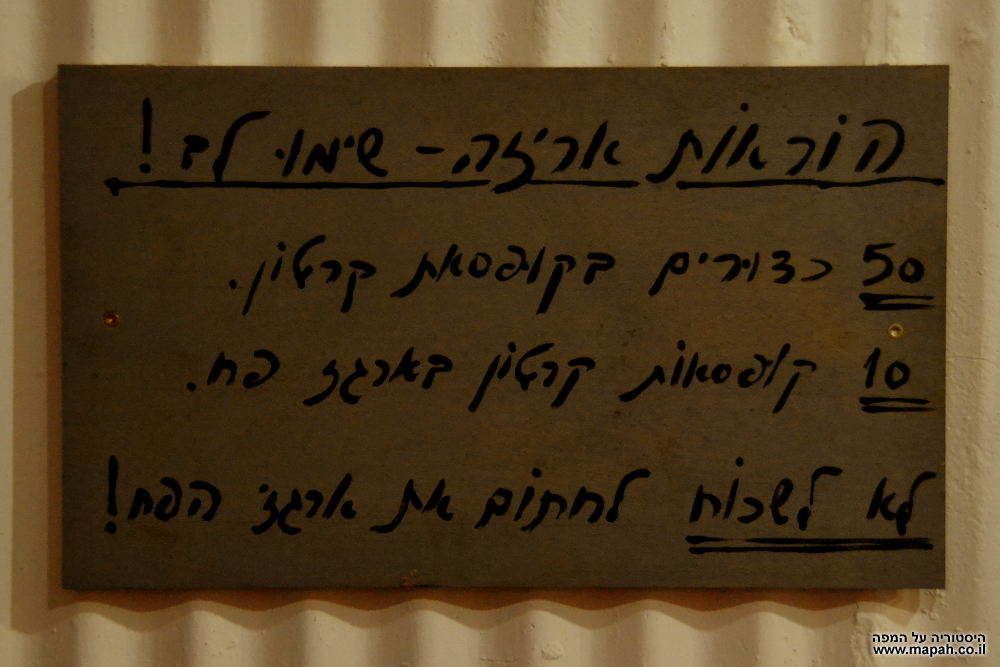 הוראות אריזה - שימו לב!
50 כדורים בקופסאת קרטון.
10 קופסאות קרטון בארגז פח.
לא לשכוח לחתום את ארגזי הפח!
היסטוריה על המפה
www.mapah.co.il